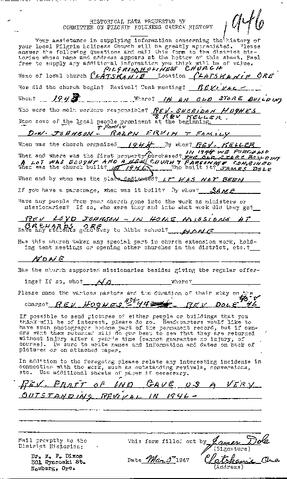 946
HISTORICAL DATA REQUESTED BY
COMMITTEE ON PILGRIM HOLINESS CHURCH HISTORY
Your assistance in supplying information concerning the history
of your local Pilgrim Holiness Church will be greatly appreciated. Please
answer the following questions and mail this form to the district his-
torian whose name and address appears at the bottom of this sheet. Feel
free to supply any additional information you think will be of value.
PILGRIM HOLINESS CHURCH
Name of local church CLATSKANIE Location CLATSKANIE ORE
How did the church begin? Revival? Tent meeting? REVIVAL
When? 1943 Where? IN AN OLD STORE BUILDING
Who were the main workers responsible? REV. SHERIDAN HUGHES
& REV KELLER.
Who were some of the local people prominent at the beginning
D.W. JOHNSON & FAMILY - RALPH ERVIN & FAMILY
When was the church organized? 1944 By whom? REV. KELLER
When and where was the first property purchased? THE OLD STORE BUILDING
A LOT WAS BOUGHT AND A NEW CHURCH PARSONAGE COMBINED
1946 Who built it? JAMES DOLE
When and by whom was the place IT HAS NOT BEEN
If you have a parsonage, what was it built? By whom? SAME
Have any people from your church gone into the work as ministers or
missionaries? If so, who were they and into what work did they go?
REV LLYD JOHNSON - IN HOME MISSIONS AT
ORCHARDS ORE
Have any students gone away to Bible school? NONE
Has this church taken any special part in church extension work, hold-
ing tent meetings or opening other churches in the district, etc.?
NONE
Has the church supported missionaries besides giving the regular offer-
ings? If so, what NO where?
Please name the various pastors and the duration of their stay on the
charge? REV. HUGHES 44 REV DOLE 46
If possible to send pictures of either people or buildings that you
think will be of interest, please do so. Headquarters would like to
have such photographs become part of the permanent record, but if
you want them returned will do our best to see that they are returned
without injury after a people's time (cannot guarantee no injury, of
course). Be sure to write names and information and dates on back of
pictures or on attached paper.
In addition to the foregoing please relate any interesting incidents in
connection with the work, such as outstanding revivals, conversions,
etc. Use additional sheets of paper if necessary.
REV. PRATT OF IND GAVE US A VERY
OUTSTANDING REVIVAL IN 1946-
Mail promptly to the
District Historian:
This form filled out by James Dole
(Signature)
Date Mar 5 1947 Clatskanie Ore
(Address)
Newberg, Ore.